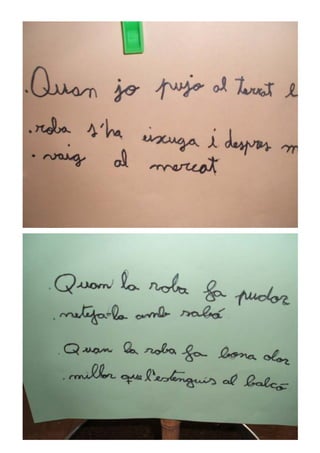 .Quan jo pujo al terrat l
.roba s'ha eixuga i despres m
.vaig al mercat
.Quan la roba fa pudor
.neteja-la amb sabó
.Quan la roba fa bona olor
.millor que l'estenguis al balcó